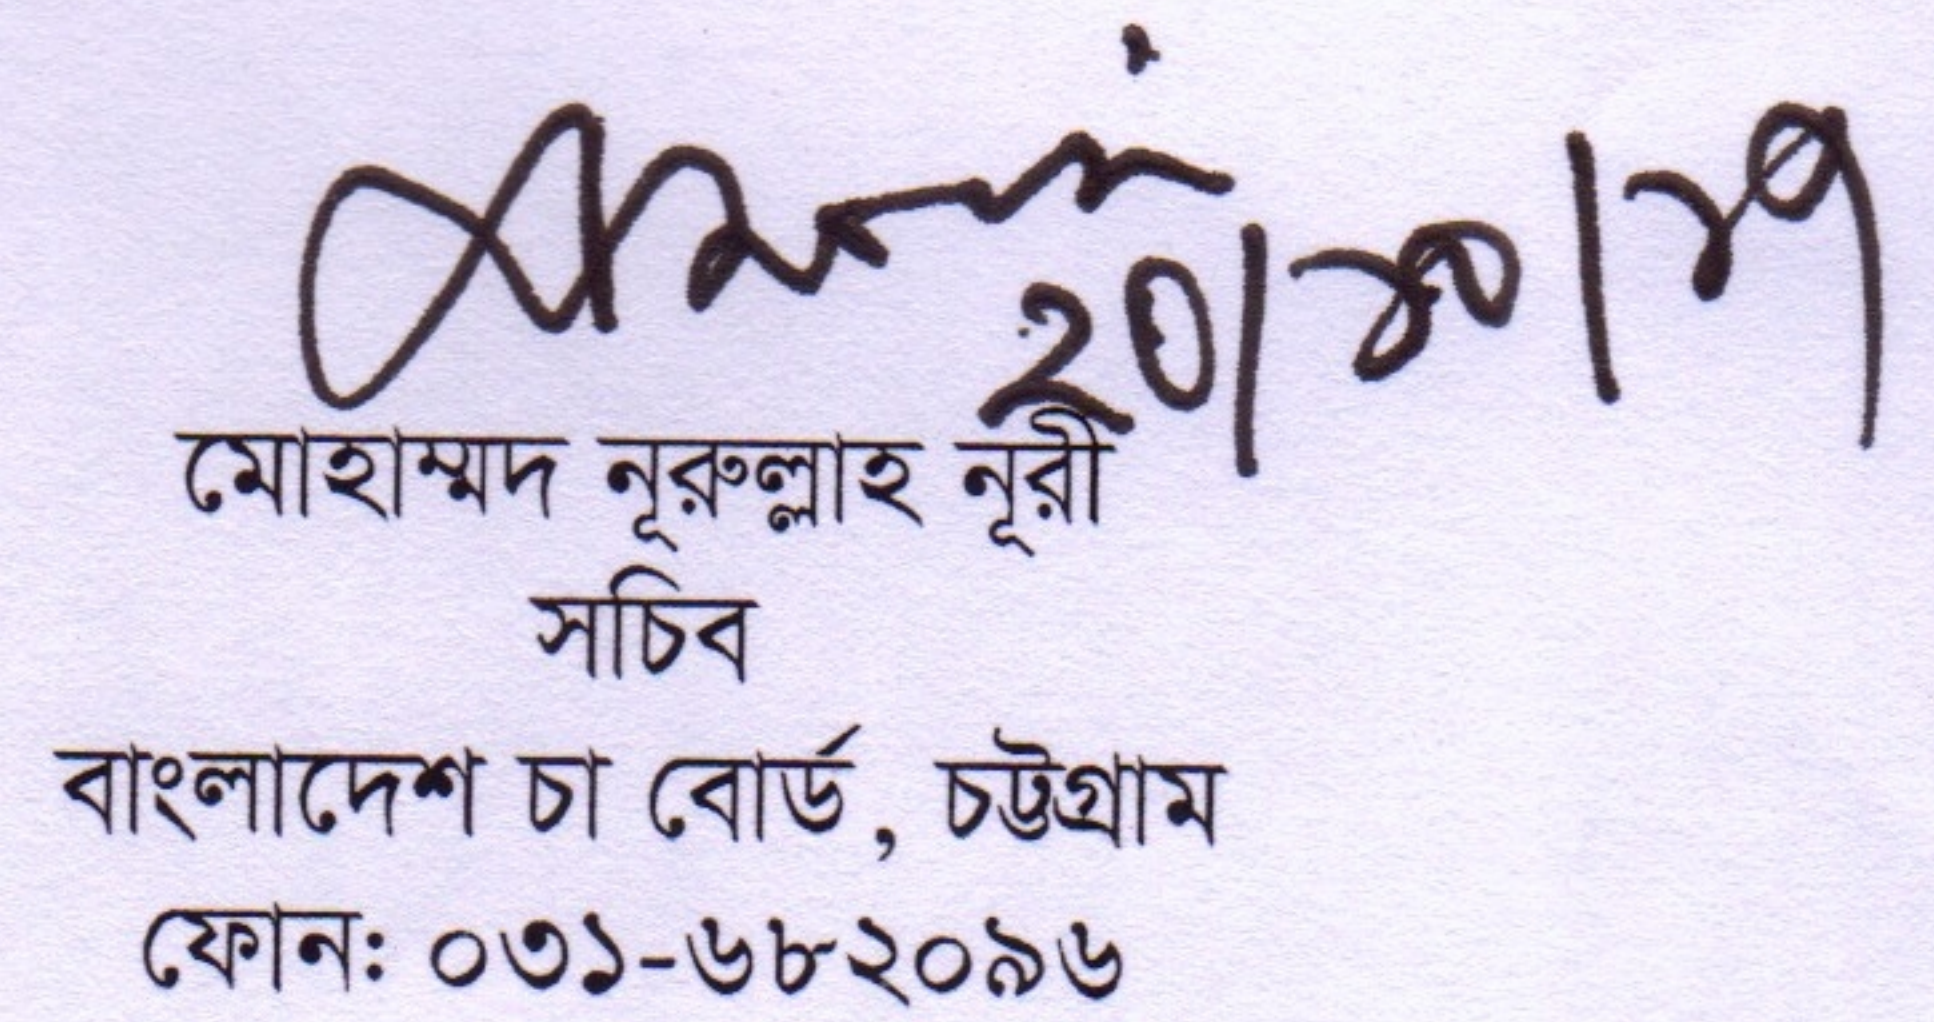 ২০/১০/১৭
মোহাম্মদ নূরুল্লাহ নূরী
সচিব
বাংলাদেশ চা বোর্ড, চট্টগ্রাম
ফোন: ০৩১-৬৮২০৯৬